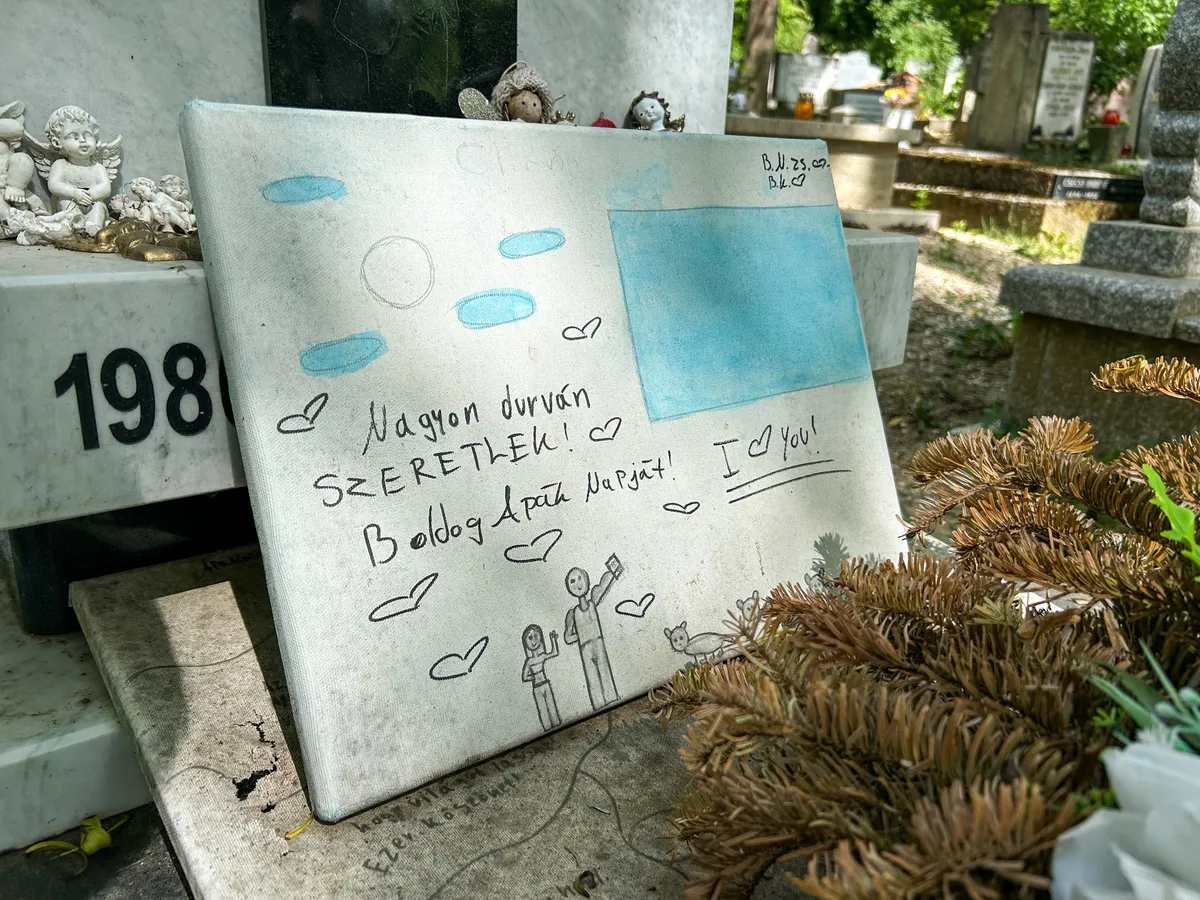 B.N.ZS.
B.K.
Nagyon durván
SZERETLEK!
Boldog Apák Napját!
I ♡ You!
198
Ezer Köszönet